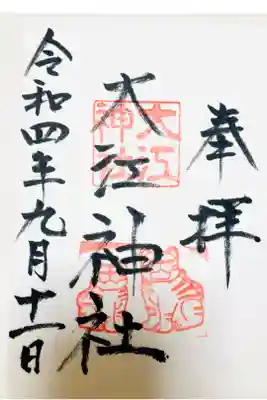 奉拝
大江神社
大江神社
令和四年九月十一日